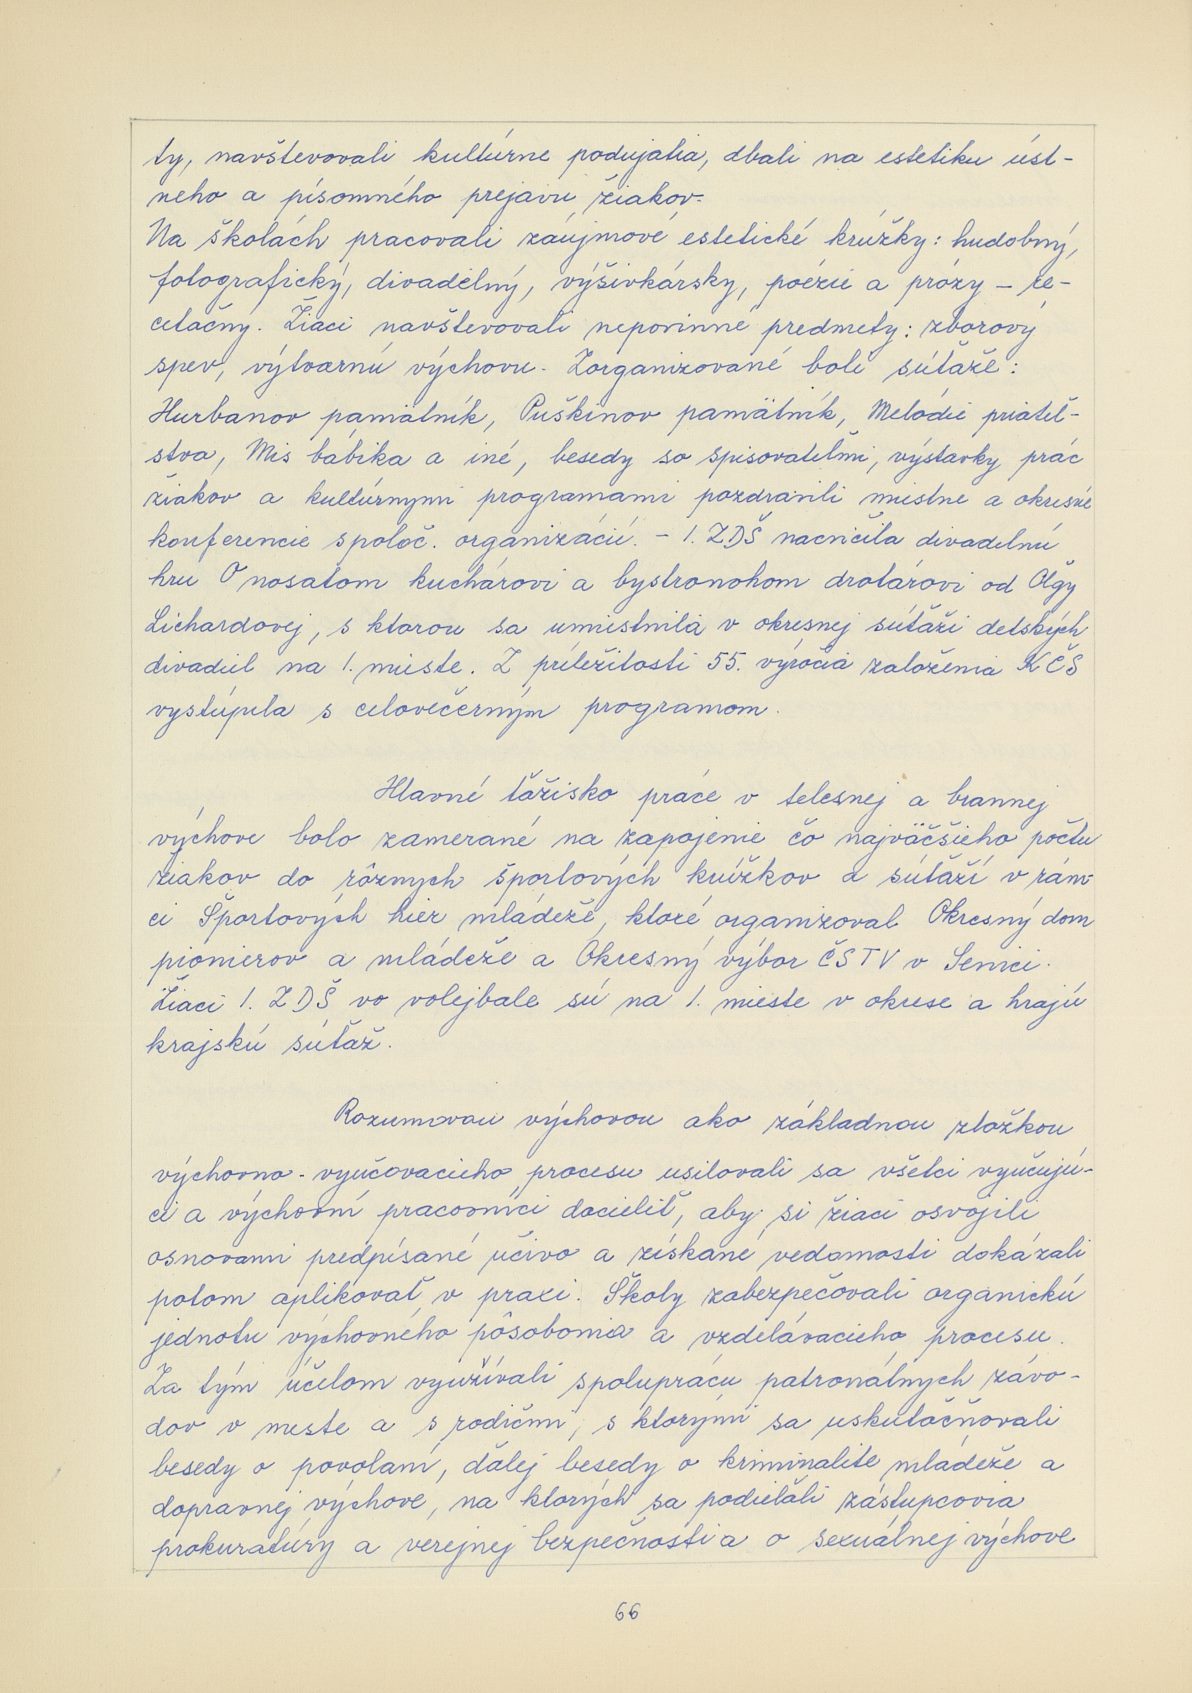 ty, navštevovali kultúrne podujatia, dbali na estetiku úst-
neho a písomného prejavu žiakov.
Na školách pracovali záujmové estetické krúžky: hudobný,
fotografický, divadelný, výšivkársky, poézie a prózy - re-
citačný. Žiaci navštevovali nepovinné predmety: zborový
spev, výtvarnú výchovu. Zorganizované boli súťaže:
Hurbanov pamätník, Puškinov pamätník, Melódie priateľ-
stva, Mis bábika a iné, besedy so spisovateľmi, výstavky prác
žiakov a kultúrnymi programami pozdravili miestne a okresné
konferencie spoloč. organizácií. - 1. ZDŠ nacvičila divadelnú
hru O nosatom kuchárovi a bystronohom drotárovi od Oľgy
Lichardovej, s ktorou sa umiestnila v okresnej súťaži detských
divadiel na 1. mieste. Z príležitosti 55. výročia založenia KČS
vystúpila s celovečerným programom.
Hlavné ťažisko práce v telesnej a brannej
výchove bolo zamerané na zapojenie čo najväčšieho počtu
žiakov do rôznych športových krúžkov a súťaží v rám-
ci Športových hier mládeže, ktoré organizoval Okresný dom
pionierov a mládeže a Okresný výbor ČSTV v Senici.
Žiaci 1. ZDŠ vo volejbale sú na 1. mieste v okrese a hrajú
krajskú súťaž.
Rozumovou výchovou ako základnou zložkou
výchovno-vyučovacieho procesu usilovali sa všetci vyučujú-
ci a výchovní pracovníci docieliť, aby si žiaci osvojili
osnovami predpísané učivo a získané vedomosti dokázali
potom aplikovať v praxi. Školy zabezpečovali organickú
jednotu výchovného pôsobenia a vzdelávacieho procesu.
Za tým účelom využívali spoluprácu patronátnych závo-
dov v meste a s rodičmi, s ktorými sa uskutočňovali
besedy o povolaní, ďalej besedy o kriminalite mládeže a
dopravnej výchove, na ktorých sa podieľali zástupcovia
prokuratúry a verejnej bezpečnosti a o sexuálnej výchove
66